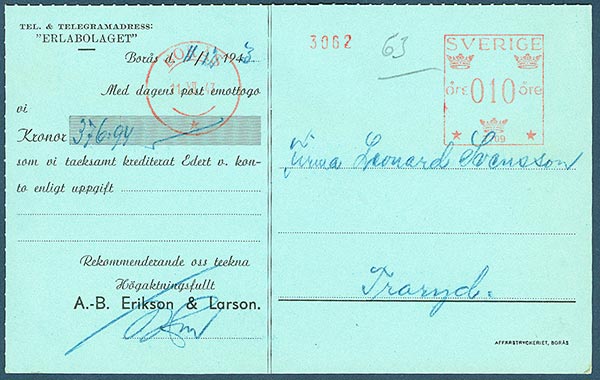 TEL. & TELEGRAMADRESS:
"ERLABOLAGET"
Borås d. 11/12 1943
Med dagens post emottogo
vi
Kronor 376:94
som vi tacksamt krediterat Edert v. kon-
to enligt uppgift
Rekommenderande oss teckna
Högaktningsfullt
A.-B. Erikson & Larson.
BORÅS
3062
63
SVERIGE
öre 010 öre
Firma Leonard Svensson
Traryd.
AFFÄRSTRYCKERIET, BORÅS